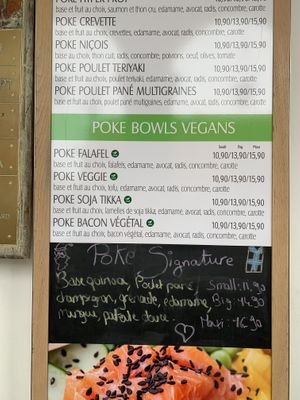 POKE CREVETTE 10,90/13,90/15,90
base et fruit au choix, crevettes, edamame, avocat, radis, concombre, carotte
POKE NIÇOIS 10,90/13,90/15,90
base et fruit au choix, thon cuit, radis, concombre, poivrons, oeuf, olives, tomate
POKE POULET TERIYAKI 10,90/13,90/15,90
base et fruit au choix, poulet teriyaki, edamame, avocat, radis, concombre, carotte
POKE POULET PANÉ MULTIGRAINES 10,90/13,90/15,90
base et fruit au choix, poulet pané multigraines, edamame, avocat, radis, concombre, carotte
POKE BOWLS VEGANS
POKE FALAFEL 10,90/13,90/15,90
base et fruit au choix, falafels, edamame, avocat, radis, concombre, carotte
POKE VEGGIE 10,90/13,90/15,90
base et fruit au choix, tofu, edamame, avocat, radis, concombre, carotte
POKE SOJA TIKKA 10,90/13,90/15,90
base et fruit au choix, lamelles de soja tikka, edamame, avocat, radis, concombre, carotte
POKE BACON VÉGÉTAL 10,90/13,90/15,90
base et fruit au choix, bacon végétal, edamame, avocat, radis, concombre, carotte
Poke Signature
Base quinoa, Poulet pané, Small: 11,90
champignon, grenade, edamame, Big: 14,90
mangue, patate douce. Maxi: 16,90